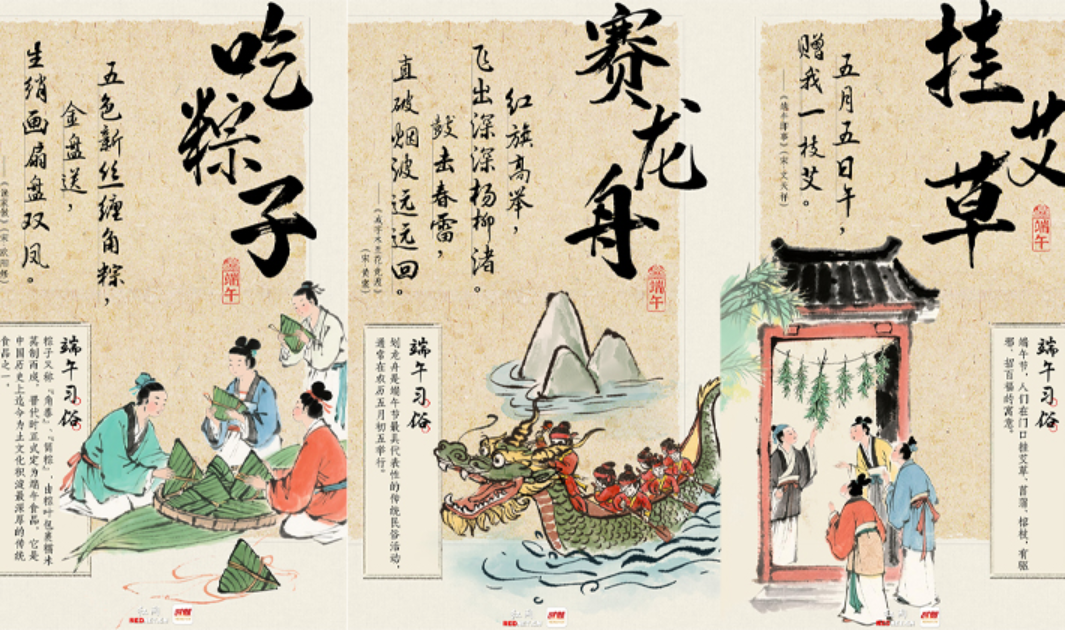 吃粽子
端午
五色新丝缠角粽，
金盘送，
生绡画扇盘双凤。
——《渔家傲》（宋·欧阳修）
端午习俗
粽子又称“角黍”、“筒粽”，由粽叶包裹糯米
蒸制而成，晋代时正式定为端午食品。它是
中国历史上迄今为止文化积淀最深厚的传统
食品之一。
赛龙舟
端午
红旗高举，
飞出深深杨柳渚。
鼓击春雷，
直破烟波远远回。
——《减字木兰花·竞渡》
（宋·黄裳）
端午习俗
划龙舟是端午节最具代表性的传统民俗活动，
通常在农历五月初五举行。
挂艾草
端午
五月五日午，
赠我一枝艾。
——《端午即事》（宋·文天祥）
端午习俗
端午节，人们在门口挂艾草、菖蒲、榕枝，有驱
邪、招百福的寓意。